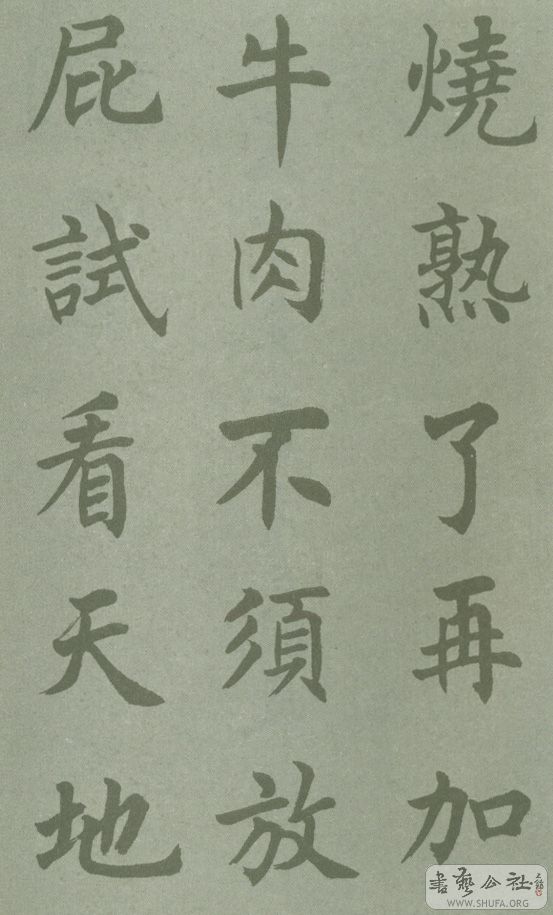 燒熟了再加
牛肉不須放
屁試看天地
書藝公社
WWW.SHUFA.ORG